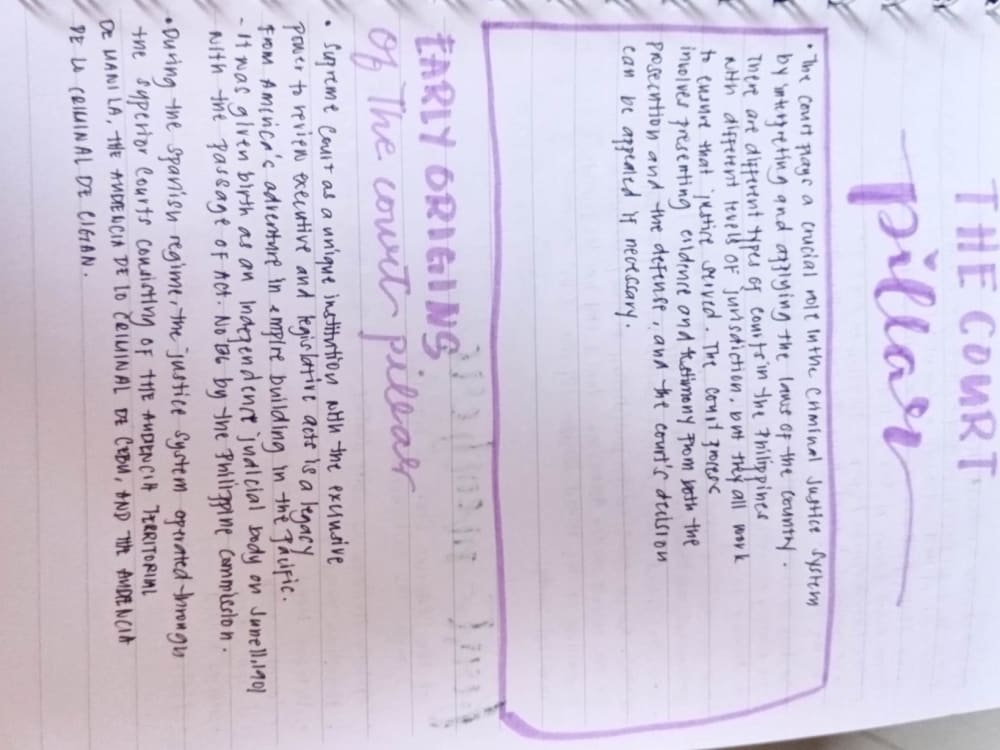 THE COURT
pillar
• The court plays a crucial role in the criminal justice system
by interpreting and applying the laws of the country.
There are different types of courts in the Philippines
with different levels of jurisdiction, but they all work
to ensure that justice served. The court process
involves presenting evidence and testimony from both the
prosecution and the defense, and the court's decision
can be appealed if necessary.
EARLY ORIGINS
of The court pillar
• Supreme court as a unique institution with the exclusive
power to review executive and legislative acts is a legacy
from America's adventure in empire building in the Pacific.
- It was given birth as an independence judicial body on June 11, 1901
with the passage of Act. No 136 by the Philippine commission.
• During the spanish regime, the justice system operated through
the superior courts consisting of THE AUDENCIA TERRITORIAL
DE MANILA, THE AUDENCIA DE LO CRIMINAL DE CEBU, AND THE AUDENCIA
DE LO CRIMINAL DE CIGAN.